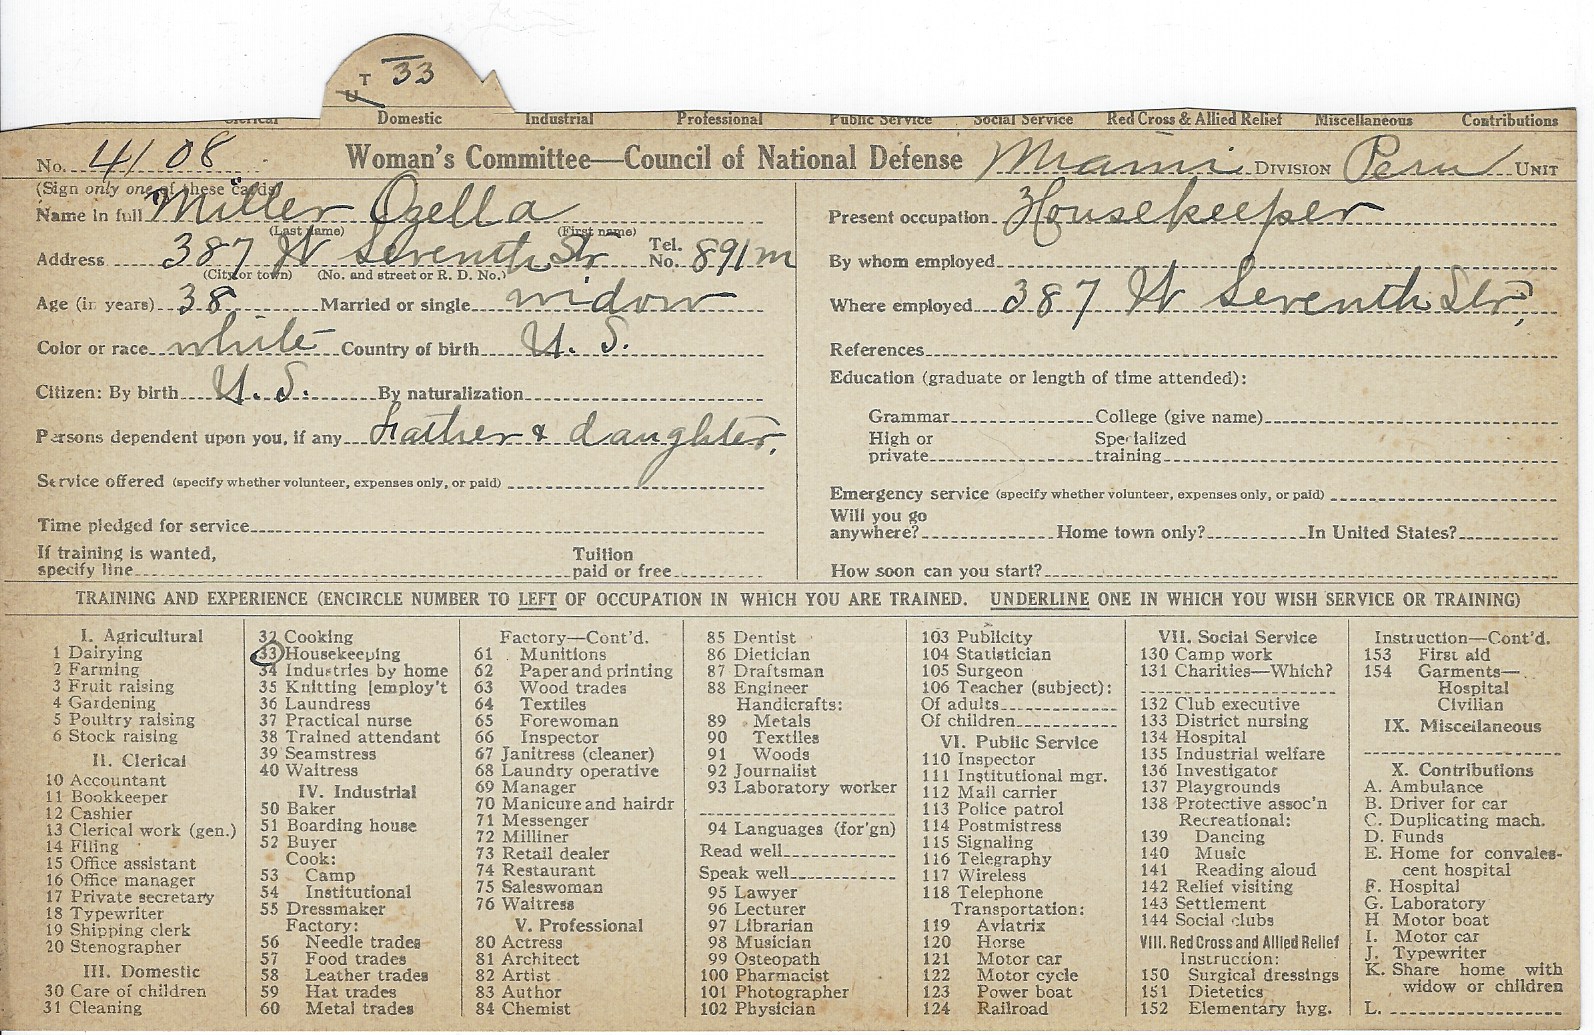 T 33
U
Clerical Domestic Industrial Professional Public Service Social Service Red Cross & Allied Relief Miscellaneous Contributions
No. 4108 Woman's Committee—Council of National Defense Miami DIVISION Peru UNIT
(Sign only one of these cards)
Name in full Miller Ozella
(Last name) (First name)
Address 387 W Seventh Str Tel. No. 891m
(City or town) (No. and street or R. D. No.)
Age (in years) 38 Married or single widow
Color or race white Country of birth U. S.
Citizen: By birth U. S. By naturalization
Persons dependent upon you, if any Father & daughter,
Service offered (specify whether volunteer, expenses only, or paid)
Time pledged for service
If training is wanted, specify line Tuition paid or free
Present occupation Housekeeper
By whom employed
Where employed 387 W Seventh Str,
References
Education (graduate or length of time attended):
Grammar College (give name)
High or private Specialized training
Emergency service (specify whether volunteer, expenses only, or paid)
Will you go anywhere? Home town only? In United States?
How soon can you start?
TRAINING AND EXPERIENCE (ENCIRCLE NUMBER TO LEFT OF OCCUPATION IN WHICH YOU ARE TRAINED. UNDERLINE ONE IN WHICH YOU WISH SERVICE OR TRAINING)
I. Agricultural
1 Dairying
2 Farming
3 Fruit raising
4 Gardening
5 Poultry raising
6 Stock raising
II. Clerical
10 Accountant
11 Bookkeeper
12 Cashier
13 Clerical work (gen.)
14 Filing
15 Office assistant
16 Office manager
17 Private secretary
18 Typewriter
19 Shipping clerk
20 Stenographer
III. Domestic
30 Care of children
31 Cleaning
32 Cooking
33 Housekeeping
34 Industries by home
35 Knitting [employ't
36 Laundress
37 Practical nurse
38 Trained attendant
39 Seamstress
40 Waitress
IV. Industrial
50 Baker
51 Boarding house
52 Buyer
Cook:
53 Camp
54 Institutional
55 Dressmaker
Factory:
56 Needle trades
57 Food trades
58 Leather trades
59 Hat trades
60 Metal trades
Factory—Cont'd.
61 Munitions
62 Paper and printing
63 Wood trades
64 Textiles
65 Forewoman
66 Inspector
67 Janitress (cleaner)
68 Laundry operative
69 Manager
70 Manicure and hairdr
71 Messenger
72 Milliner
73 Retail dealer
74 Restaurant
75 Saleswoman
76 Waitress
V. Professional
80 Actress
81 Architect
82 Artist
83 Author
84 Chemist
85 Dentist
86 Dietician
87 Draftsman
88 Engineer
Handicrafts:
89 Metals
90 Textiles
91 Woods
92 Journalist
93 Laboratory worker
94 Languages (for'gn)
Read well
Speak well
95 Lawyer
96 Lecturer
97 Librarian
98 Musician
99 Osteopath
100 Pharmacist
101 Photographer
102 Physician
103 Publicity
104 Statistician
105 Surgeon
106 Teacher (subject):
Of adults
Of children
VI. Public Service
110 Inspector
111 Institutional mgr.
112 Mail carrier
113 Police patrol
114 Postmistress
115 Signaling
116 Telegraphy
117 Wireless
118 Telephone
Transportation:
119 Aviatrix
120 Horse
121 Motor car
122 Motor cycle
123 Power boat
124 Railroad
VII. Social Service
130 Camp work
131 Charities—Which?
132 Club executive
133 District nursing
134 Hospital
135 Industrial welfare
136 Investigator
137 Playgrounds
138 Protective assoc'n
Recreational:
139 Dancing
140 Music
141 Reading aloud
142 Relief visiting
143 Settlement
144 Social clubs
VIII. Red Cross and Allied Relief
Instruction:
150 Surgical dressings
151 Dietetics
152 Elementary hyg.
Instruction—Cont'd.
153 First aid
154 Garments—
Hospital
Civilian
IX. Miscellaneous
X. Contributions
A. Ambulance
B. Driver for car
C. Duplicating mach.
D. Funds
E. Home for convales-
cent hospital
F. Hospital
G. Laboratory
H Motor boat
I. Motor car
J. Typewriter
K. Share home with
widow or children
L.